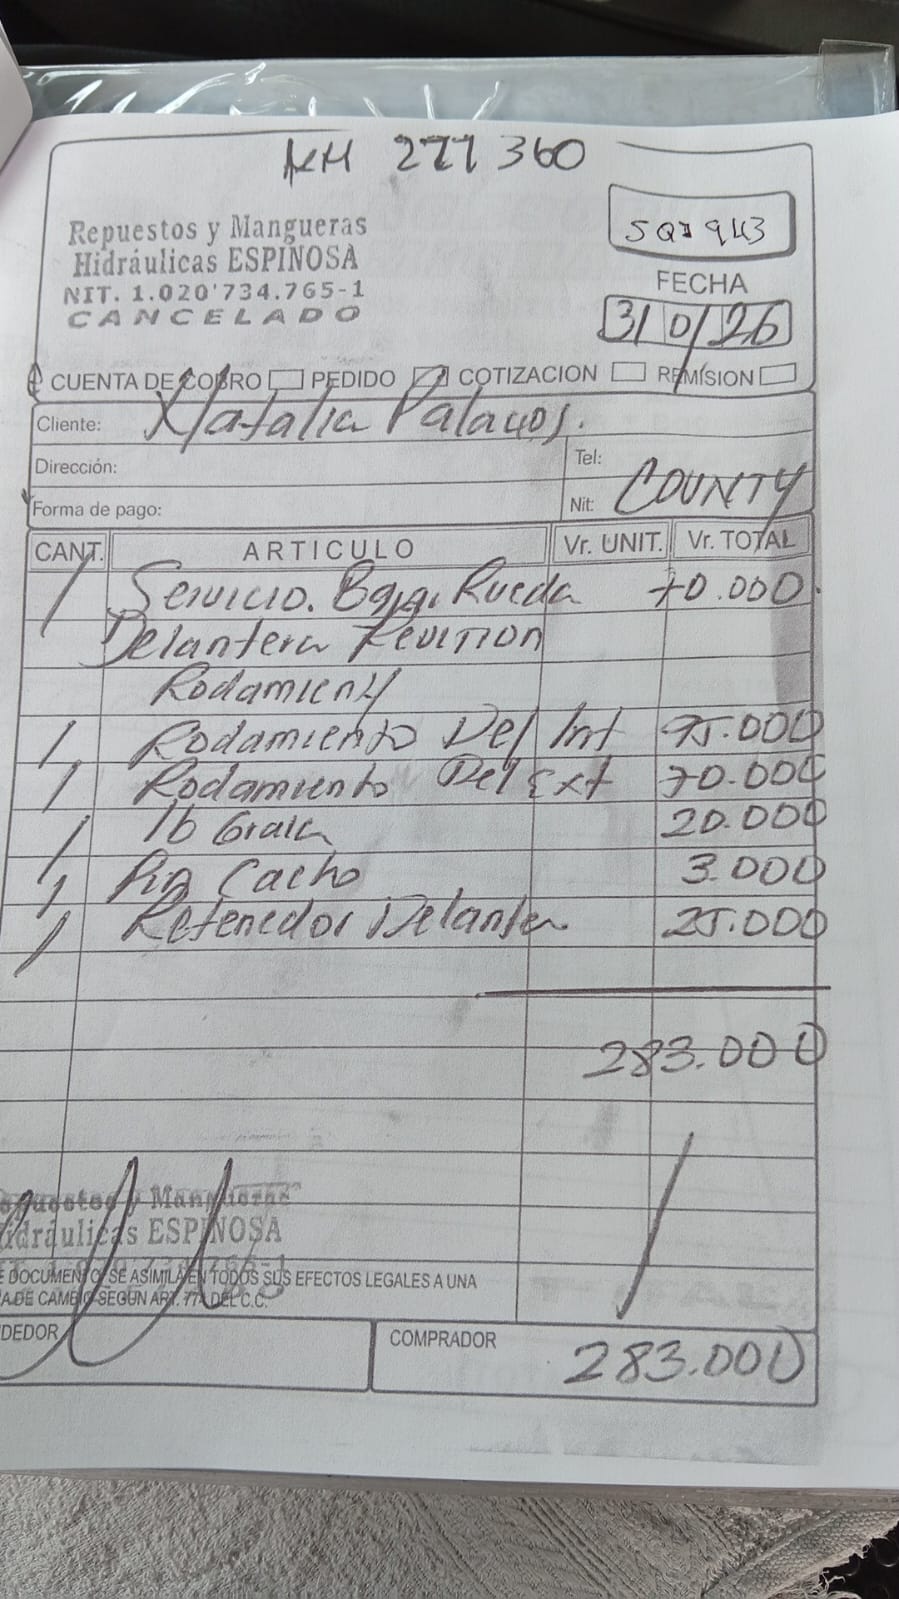 KM 277360
Repuestos y Mangueras
Hidráulicas ESPINOSA
NIT. 1.020'734.765-1
CANCELADO
SQJ943
FECHA
31 01 26
CUENTA DE COBRO PEDIDO COTIZACION REMISION
Cliente: Natalia Palacios.
Dirección: Tel:
Forma de pago: Nit: COUNTY
CANT. ARTICULO Vr. UNIT. Vr. TOTAL
1 Servicio. Baja. Rueda 70.000
Delantera Revition
Rodamient
1 Rodamiento Del Int 95.000
1 Rodamiento Del Ext 70.000
1 lb Grasa 20.000
1 Pin Cacho 3.000
1 Retenedor Delanter 25.000
283.000
Repuestos y Mangueras
Hidráulicas ESPINOSA
E DOCUMENTO SE ASIMILA EN TODOS SUS EFECTOS LEGALES A UNA
A DE CAMBIO SEGUN ART. 774 DEL C.C.
DEDOR COMPRADOR 283.000